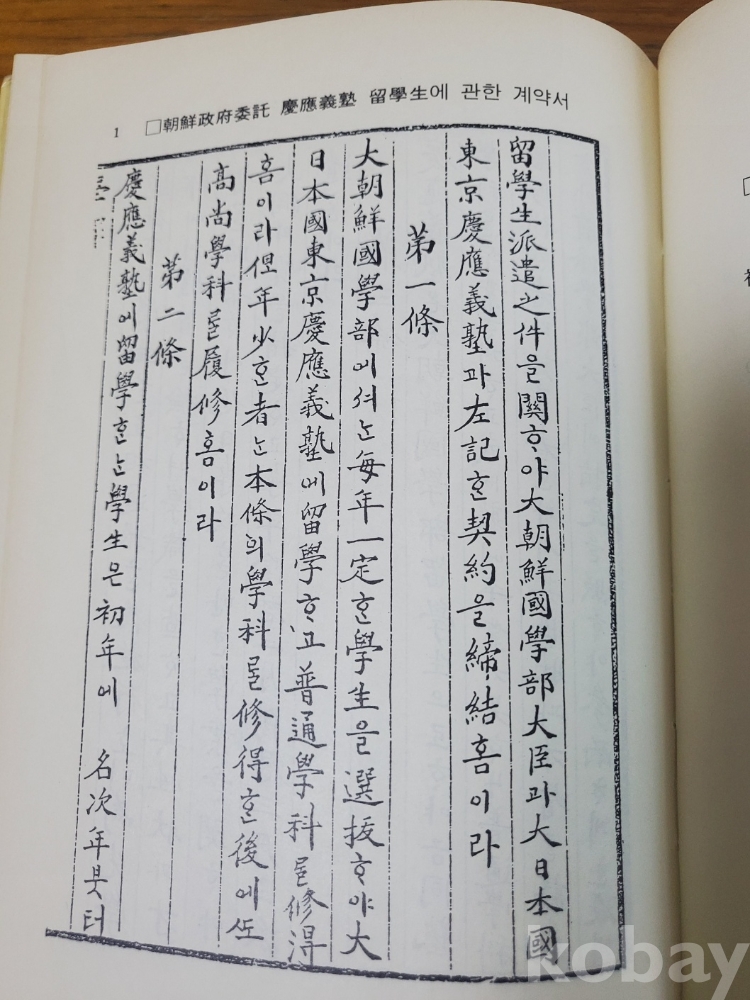 1 □朝鮮政府委託 慶應義塾 留學生에 관한 계약서
留學生派遣之件을關ᄒᆞ야大朝鮮國學部大臣과大日本國
東京慶應義塾과左記ᄒᆞᆫ契約을締結홈이라
第一條
大朝鮮國學部에셔ᄂᆞᆫ每年一定ᄒᆞᆫ學生을選拔ᄒᆞ야大
日本國東京慶應義塾에留學ᄒᆞ고普通學科ᄅᆞᆯ修得
홈이라但年少ᄒᆞᆫ者ᄂᆞᆫ本條의學科ᄅᆞᆯ修得ᄒᆞᆫ後에ᄯᅩ
高尚學科ᄅᆞᆯ履修홈이라
第二條
慶應義塾에留學ᄒᆞᄂᆞᆫ學生은初年에 名次年븟터
kobay